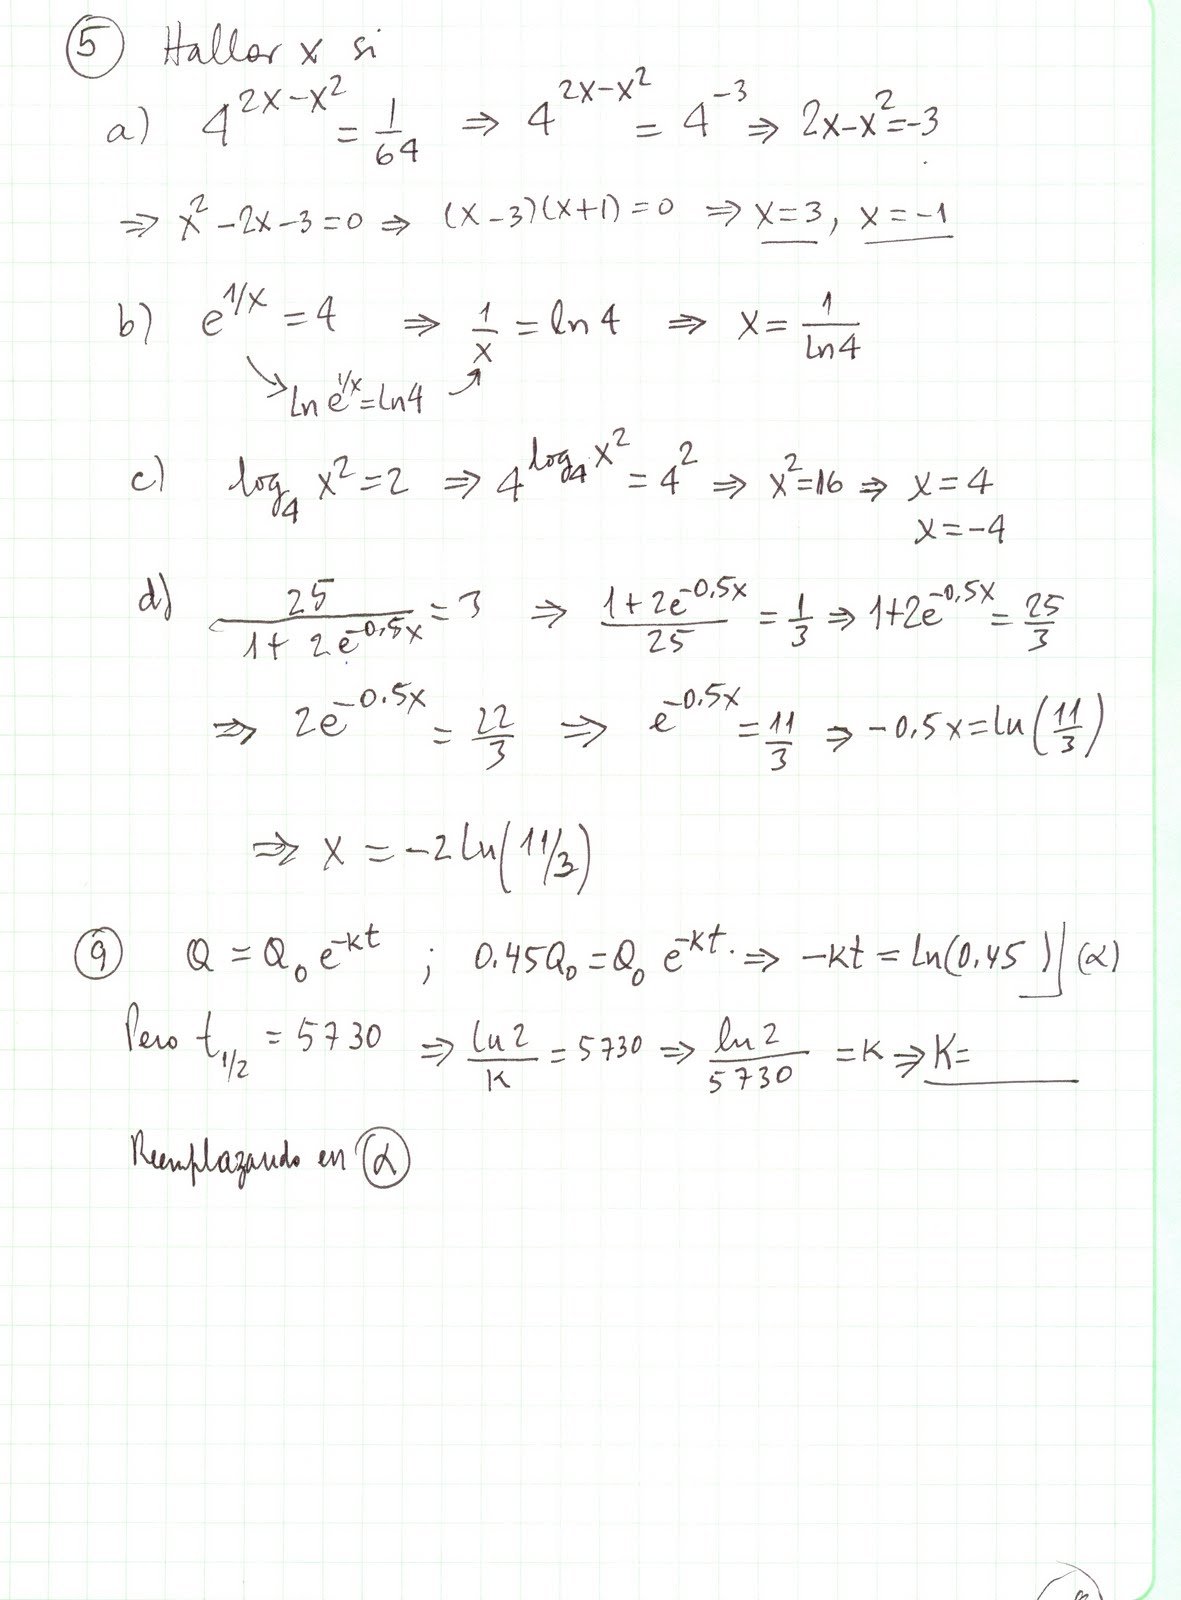 ⑤ Hallar x si
a) 4^{2x-x^2} = 1/64 ⇒ 4^{2x-x^2} = 4^{-3} ⇒ 2x-x^2=-3
⇒ x^2-2x-3=0 ⇒ (x-3)(x+1)=0 ⇒ x=3, x=-1
b) e^{1/x} = 4 ⇒ 1/x = ln 4 ⇒ x = 1/ln4
ln e^{1/x}=ln4
c) log_4 x^2=2 ⇒ 4^{log_4 x^2} = 4^2 ⇒ x^2=16 ⇒ x=4
x=-4
d) 25/(1+2e^{-0,5x}) = 3 ⇒ (1+2e^{-0.5x})/25 = 1/3 ⇒ 1+2e^{-0.5x} = 25/3
⇒ 2e^{-0.5x} = 22/3 ⇒ e^{-0.5x} = 11/3 ⇒ -0.5x=ln(11/3)
⇒ x = -2ln(11/3)
⑨ Q = Q_0 e^{-kt} ; 0.45Q_0=Q_0 e^{-kt}. ⇒ -kt = ln(0.45) (α)
Pero t_{1/2} = 5730 ⇒ ln2/k = 5730 ⇒ ln2/5730 = k ⇒ K=
Reemplazando en (α)